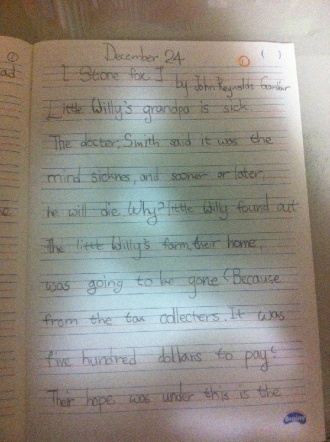 December 24
① ( )
[ Stone fox ] by John Reynolds Gardiner
Little Willy's grandpa is sick.
The docter. Smith said it was the
mind sicknes, and sooner or later,
he will die. Why? little Willy found out
the little Willy's farm, their home,
was going to be gone! Because
from the tax collecters. It was
five hundred dollars to pay!
Their hope was under this is the